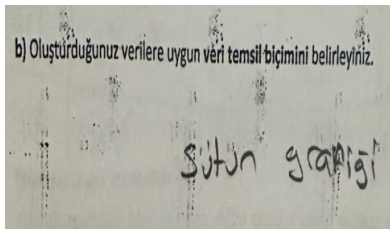 b) Oluşturduğunuz verilere uygun veri temsil biçimini belirleyiniz.
sütun grafiği